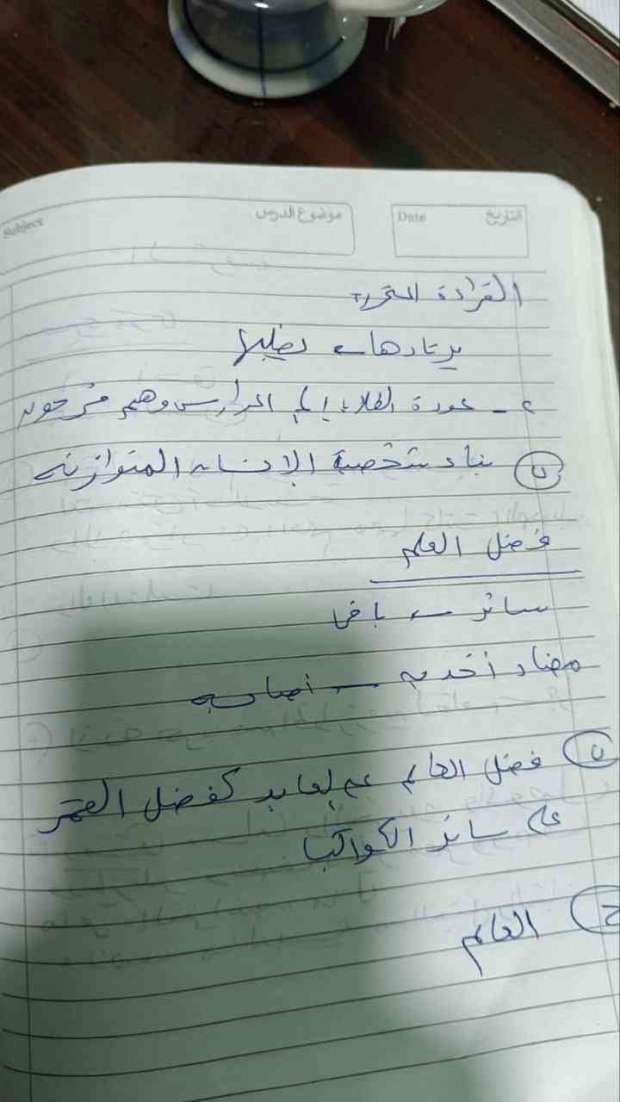 التاريخ Date
موضوع الدرس Subject
القراءة المتحررة
يرتادها ← يطلبها
٢- عودة الطلاب إلى المدارس وهم فرحون
بناء شخصية الإنسان المتوازنة
فضل العلم
سائر ← باقي
مضاد أخذ به ←
فضل العالم على العابد كفضل القمر
على سائر الكواكب
العالم